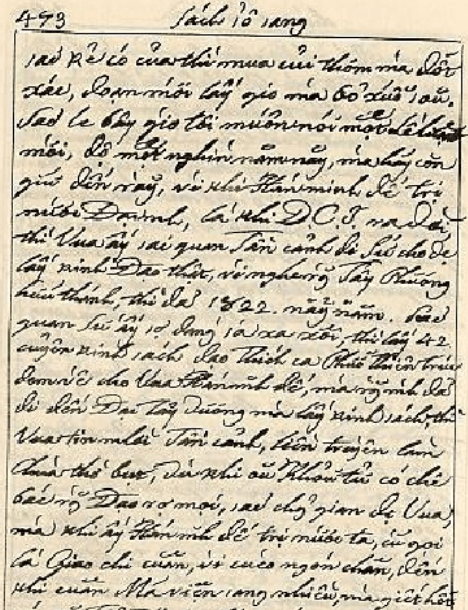 493 Sách sổ sang
sau kẻ có của thì mua củi thơm mà đốt
xác, đoạn mới lấy gio mà bỏ xuố sou.
Song le bây giờ tôi muốn nói một
mới, đã một nghìn năm nay, mà hãy còn
giữ đến rày, vì khi Hán minh đế trị
nước Đai minh, là khi D. C. J. ra đời
thì Vua ấy sai quan Tần cảnh đi Sứ cho đc
lấy kinh Đạo thật, vì nghe rằng Tây Phương
hữu thánh, thì đã 1822. nay năm. Song
quan Sứ ấy sợ đang sá xa xôi, thì lấy 42
cuyển kinh sách đạo thích ca Phút thiên trúc
đem về cho Vua Hán minh đế, mà rằng mình đã
đi đến Đại tây dương mà lấy kinh sách, thì
Vua tin mlời Tần cảnh, liền truyền làm
chùa thờ but, dù khi ấy Khổu tử có chê
bác rằng Đạo rơ mọi, sau chẳng gian đc Vua,
mà khi ấy Hán minh đế trị nước ta, cũ gọi
là Giao chỉ cuận, vì cuèo ngón chân, đến
khi cuân Mã viện sang nhiều, mà giết hết